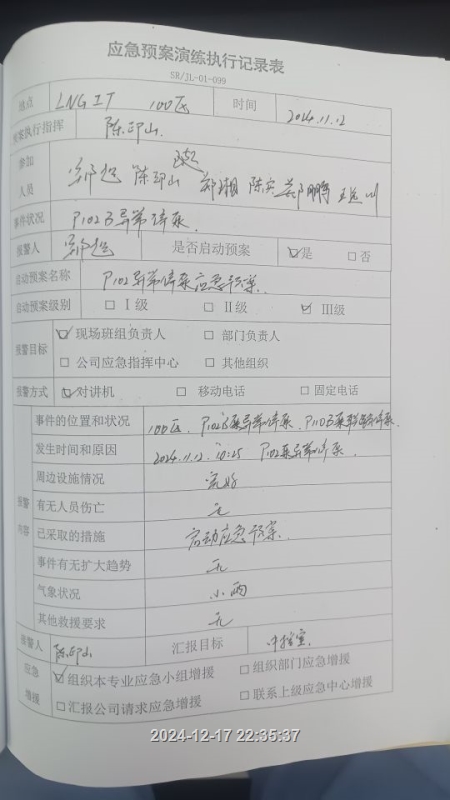 应急预案演练执行记录表
SR/JL-01-099
地点 LNG IT 100区 时间 2024.11.12
预案执行指挥 陈印山
参加人员 陈印山 郑湘 陈实 郑鹏
事件状况 P102B异常停泵
报警人 是否启动预案 ☑是 □否
启动预案名称 P102异常停泵应急预案
启动预案级别 □Ⅰ级 □Ⅱ级 ☑Ⅲ级
报警目标 ☑现场班组负责人 □部门负责人
□公司应急指挥中心 □其他组织
报警方式 ☑对讲机 □移动电话 □固定电话
报警内容
事件的位置和状况 100区,P102B泵异常停泵、P103泵停泵
发生时间和原因 2024.11.12. 20:25 P102泵异常停泵.
周边设施情况 完好
有无人员伤亡 无
已采取的措施 启动应急预案.
事件有无扩大趋势 无
气象状况 小雨
其他救援要求 无
报警人 陈印山 汇报目标 中控室
应急增援 ☑组织本专业应急小组增援 □组织部门应急增援
□汇报公司请求应急增援 □联系上级应急中心增援
2024-12-17 22:35:37